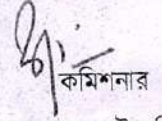 কমিশনার